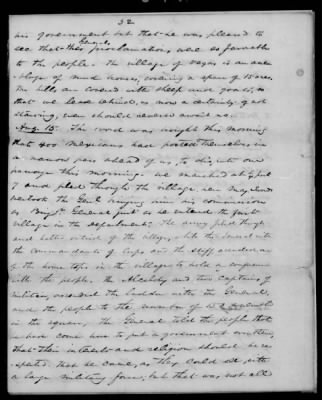 32
his government but that he was pleased to
see that the Genl's proclamations were so favorable
to the people. The village of Vegas is an ass-
-blage of mud houses, covering a space of 15 acres.
The hills are covered with sheep and goats, so
that we leave behind, as now a certainty of not
starving, even should reverse await us.
Aug. 15. The word was brought this morning
that 400 Mexicans have posted themselves in
a narrow pass ahead of us, to dispute our
passage this morning. We marched at
7 and passed through the village.
overtook the Genl. bringing him his commission
as Brigd. General just as he entered the first
village in the department. The army passed through
and halted outside of the village,
the commandants of corps and the staff ascended on
of the house tops in the village to hold a conference
with the people. The Alcalde and two Captains of
militia, ascended the ladder with the General,
and the people to the number of
in the square, the General told the people that
we have come here to put a government over them,
that their interests and religion should be re-
spected. That he came, as they could see, with
a large military force, but that was not all